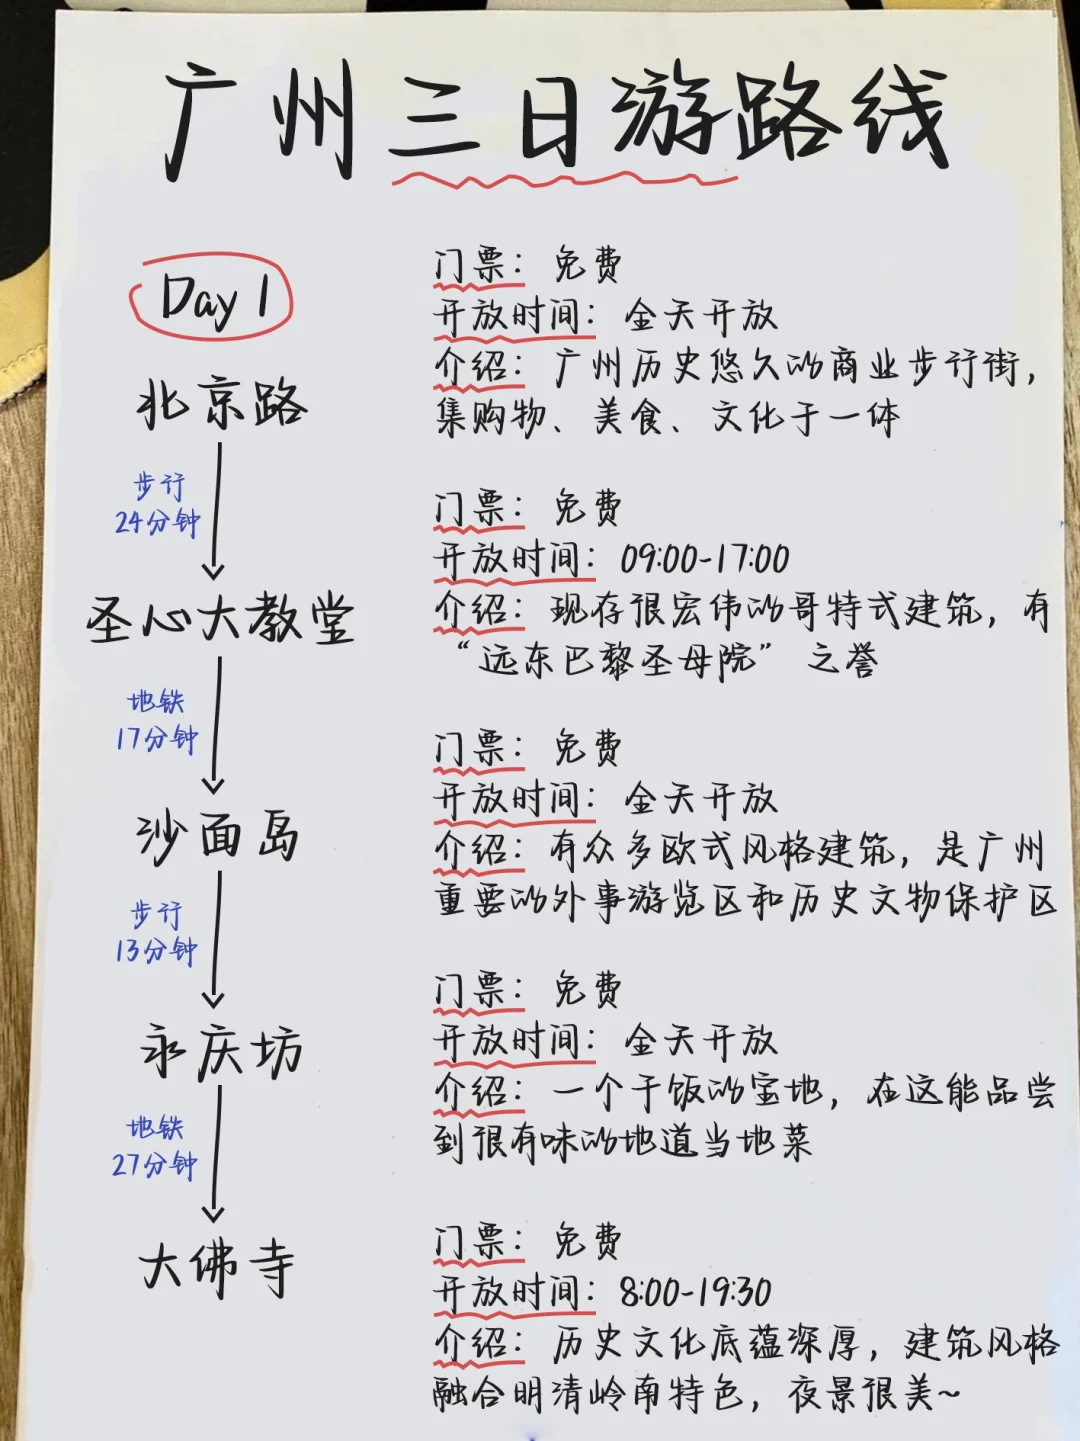 广州三日游路线
Day 1
北京路
门票：免费
开放时间：全天开放
介绍：广州历史悠久的商业步行街，
集购物、美食、文化于一体
步行
24分钟
圣心大教堂
门票：免费
开放时间：09:00-17:00
介绍：现存很宏伟的哥特式建筑，有
“远东巴黎圣母院”之誉
地铁
17分钟
沙面岛
门票：免费
开放时间：全天开放
介绍：有众多欧式风格建筑，是广州
重要的外事游览区和历史文物保护区
步行
13分钟
永庆坊
门票：免费
开放时间：全天开放
介绍：一个干饭的宝地，在这能品尝
到很有味的地道当地菜
地铁
27分钟
大佛寺
门票：免费
开放时间：8:00-19:30
介绍：历史文化底蕴深厚，建筑风格
融合明清岭南特色，夜景很美~